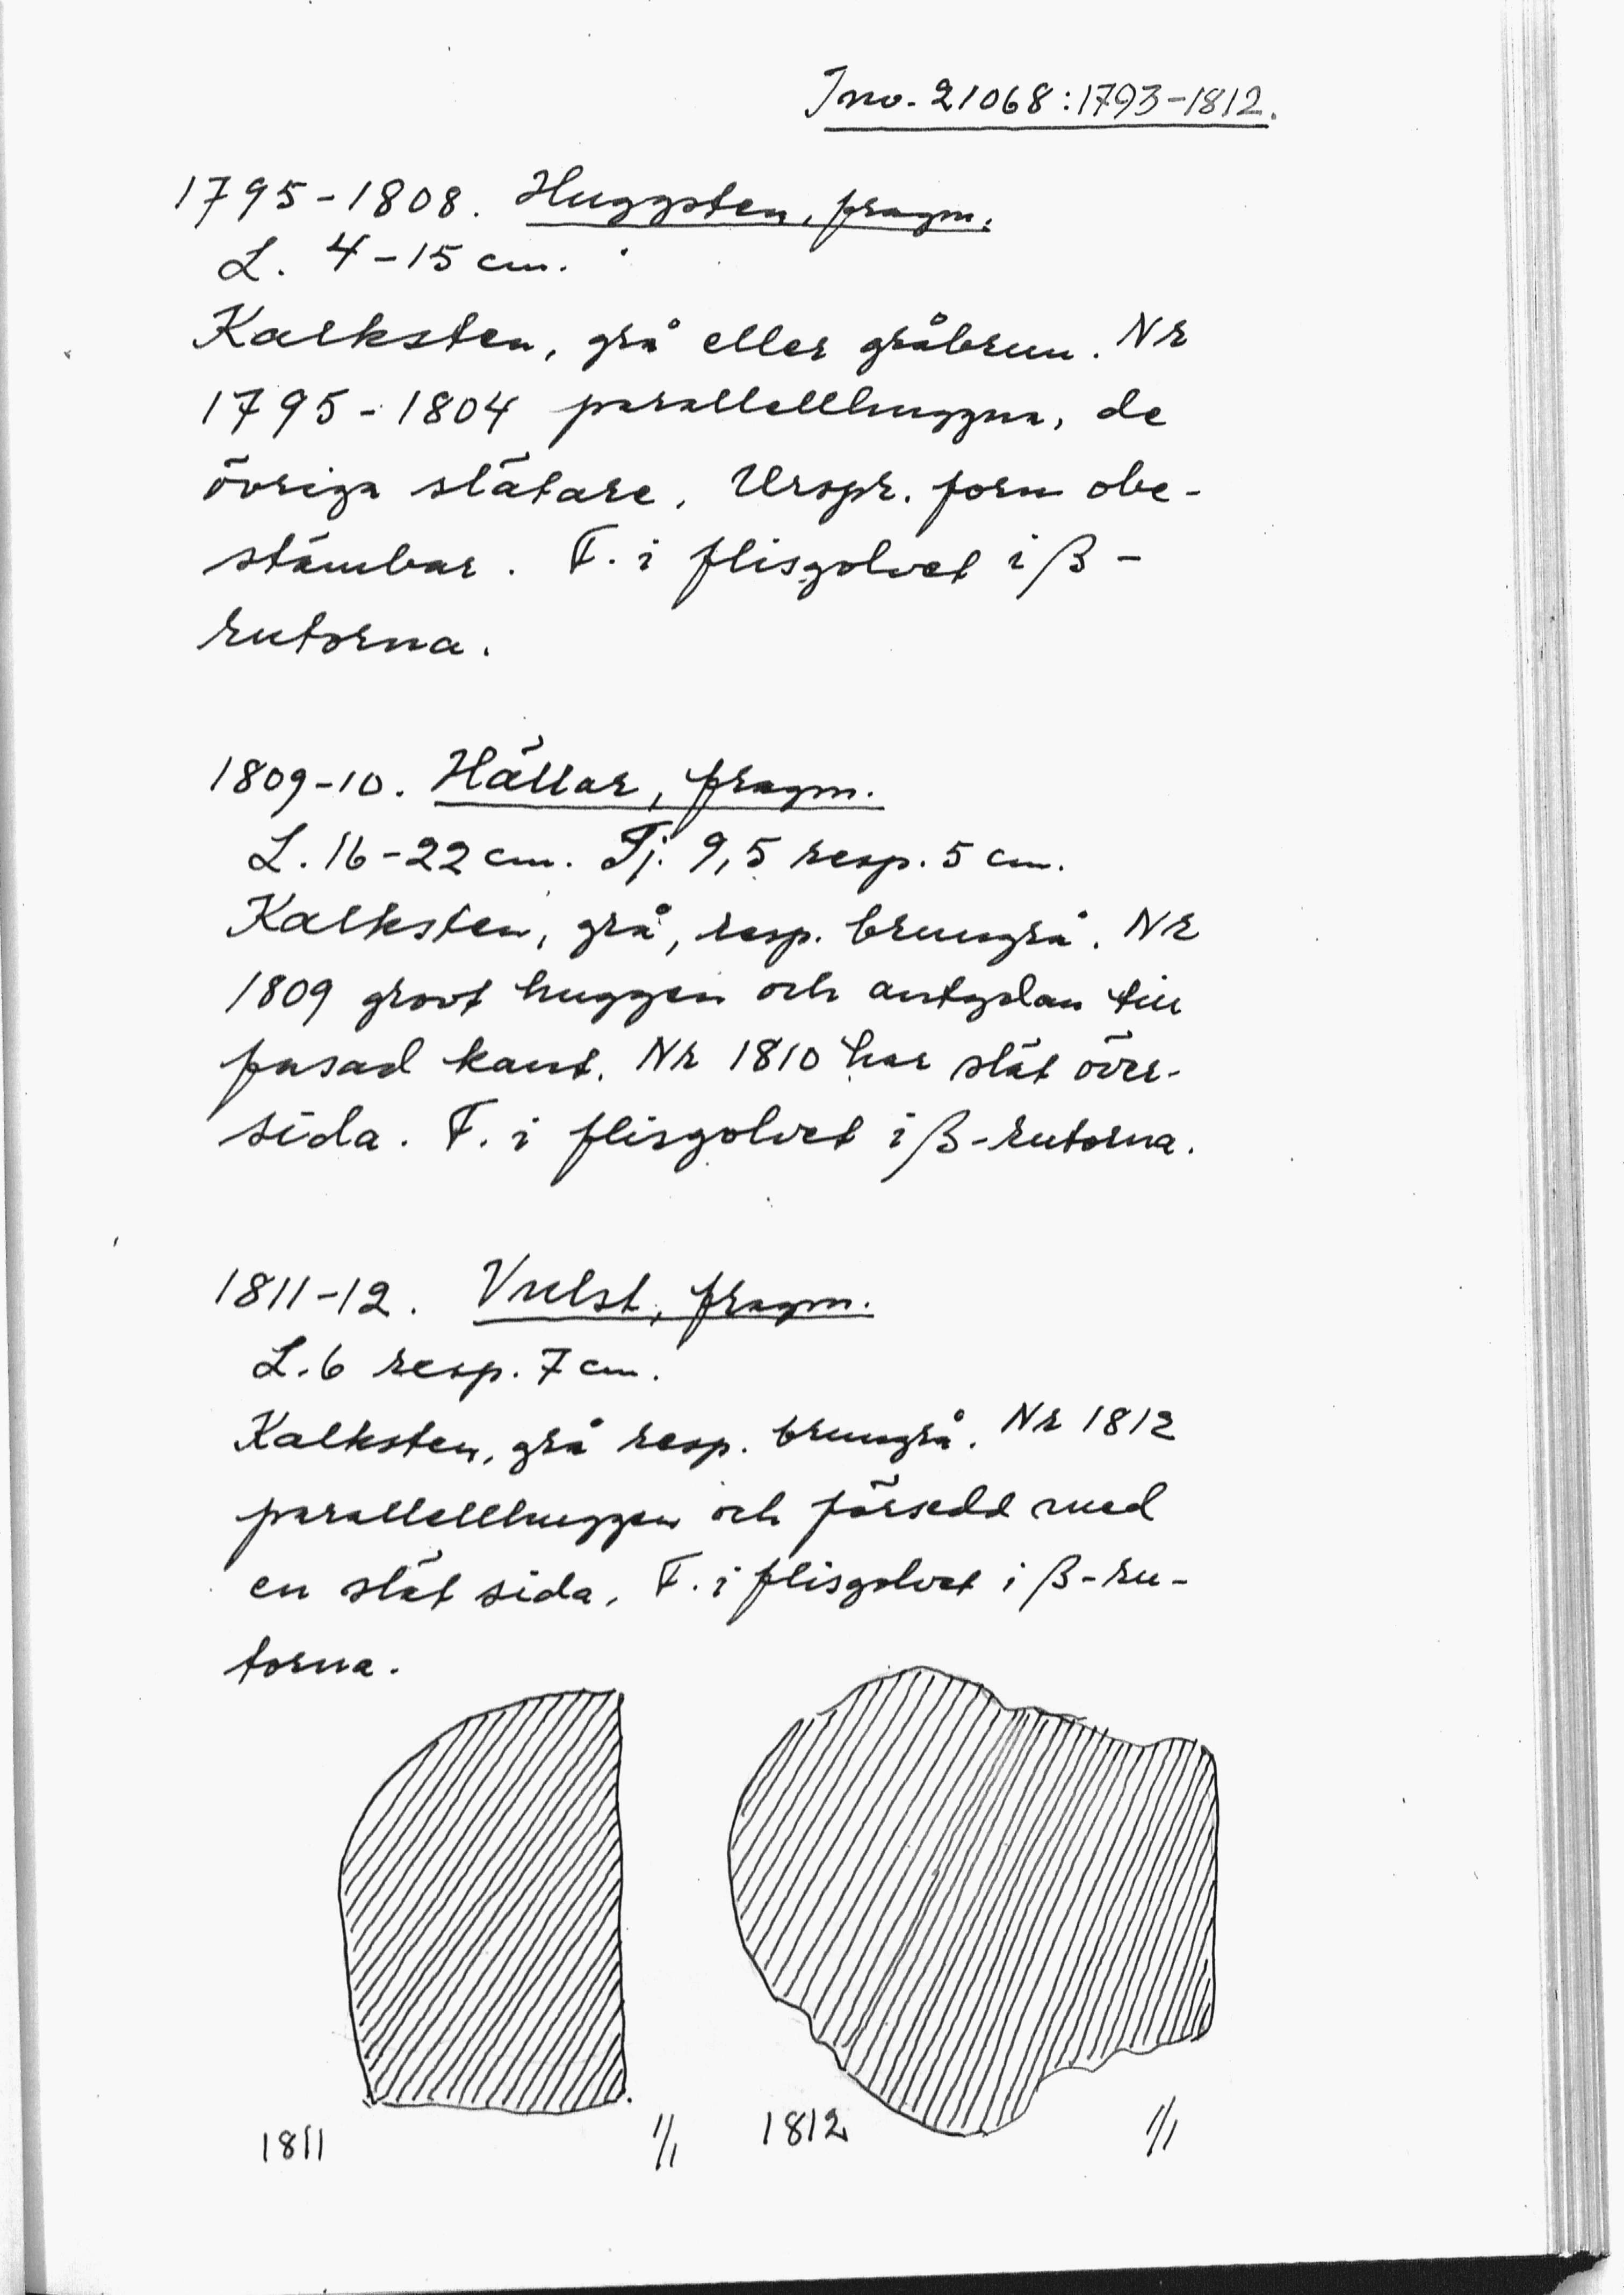 Inv. 21068:1793-1812.
1795-1808. Huggsten, fragm.
L. 4-15 cm.
Kalksten, grå eller gråbrun. Nr
1795-1804 parallellhuggna, de
övriga slätare. Urspr. form obe-
stämbar. F. i flisgolvet i β-
rutorna.
1809-10. Hällar, fragm.
L. 16-22 cm. Tj. 9,5 resp. 5 cm.
Kalksten, grå, resp. brungrå. Nr
1809 grovt huggen och antydan till
fasad kant. Nr 1810 har slät över-
sida. F. i flisgolvet i β-rutorna.
1811-12. Vulst, fragm.
L. 6 resp. 7 cm.
Kalksten, grå resp. brungrå. Nr 1812
parallellhuggen och försedd med
en slät sida. F. i flisgolvet i β-ru-
torna.
1811 1/1 1812 1/1